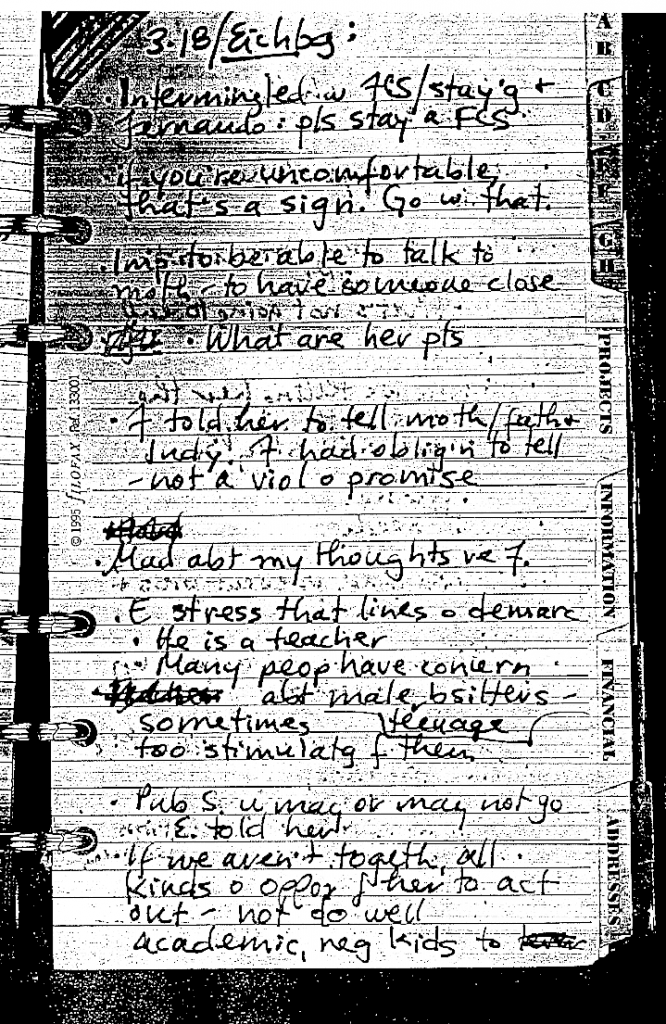 3.18/Eichbg:
· Intermingled w FCS/stay'g +
fernando: pls stay a FCS
if you're uncomfortable,
that's a sign. Go w. that.
· Imp to be able to talk to
moth - to have someone close
· What are her pls
· F told her to tell moth/fath +
Judy. F had obligin to tell
- not a viol o promise
· Mad abt my thoughts re F.
· E stress that lines o demarc
· He is a teacher
Many peop have concern
abt male bsitters -
sometimes teenage
too stimulatg f them
· Pub S. u may or may not go
E. told her
· If we aren't togeth, all
kinds o oppor f her to act
out - not do well
academic, neg kids to
A
B
C
D
E
F
G
H
PROJECTS
INFORMATION
FINANCIAL
ADDRESSES
© 1995 FILOFAX Ref 133001